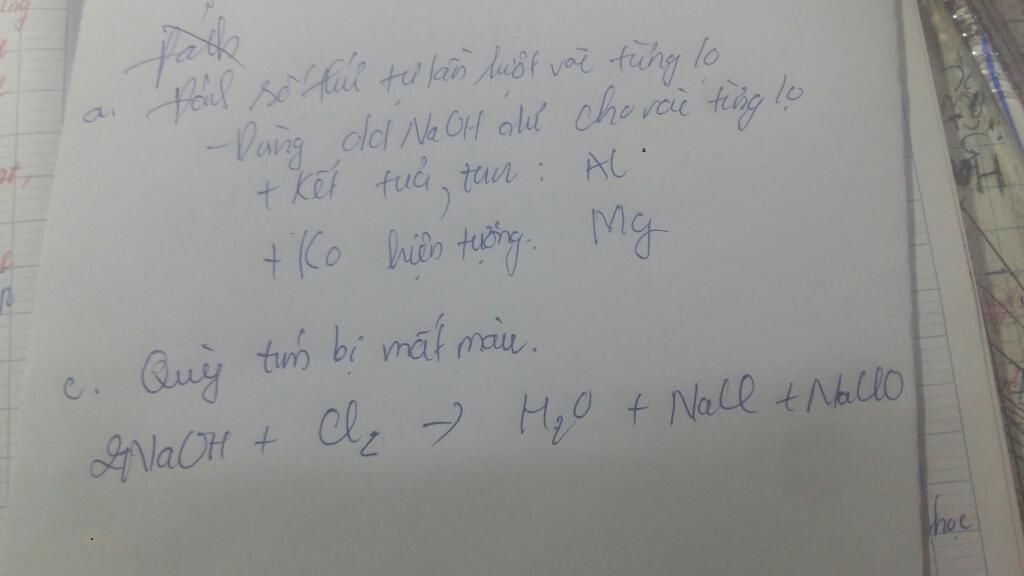 a. Đánh số thứ tự lần lượt vào từng lọ
- Dùng dd NaOH dư cho vào từng lọ
+ Kết tủa, tan : Al
+ Ko hiện tượng. Mg
c. Quỳ tím bị mất màu.
2NaOH + Cl₂ → H₂O + NaCl + NaClO
học